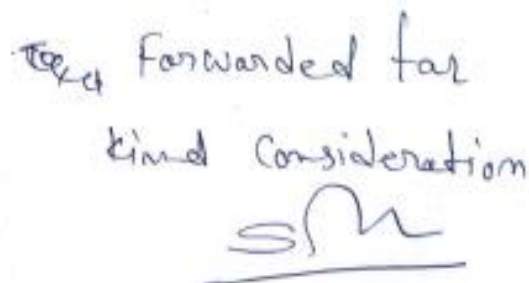 Forwarded for
kind Consideration